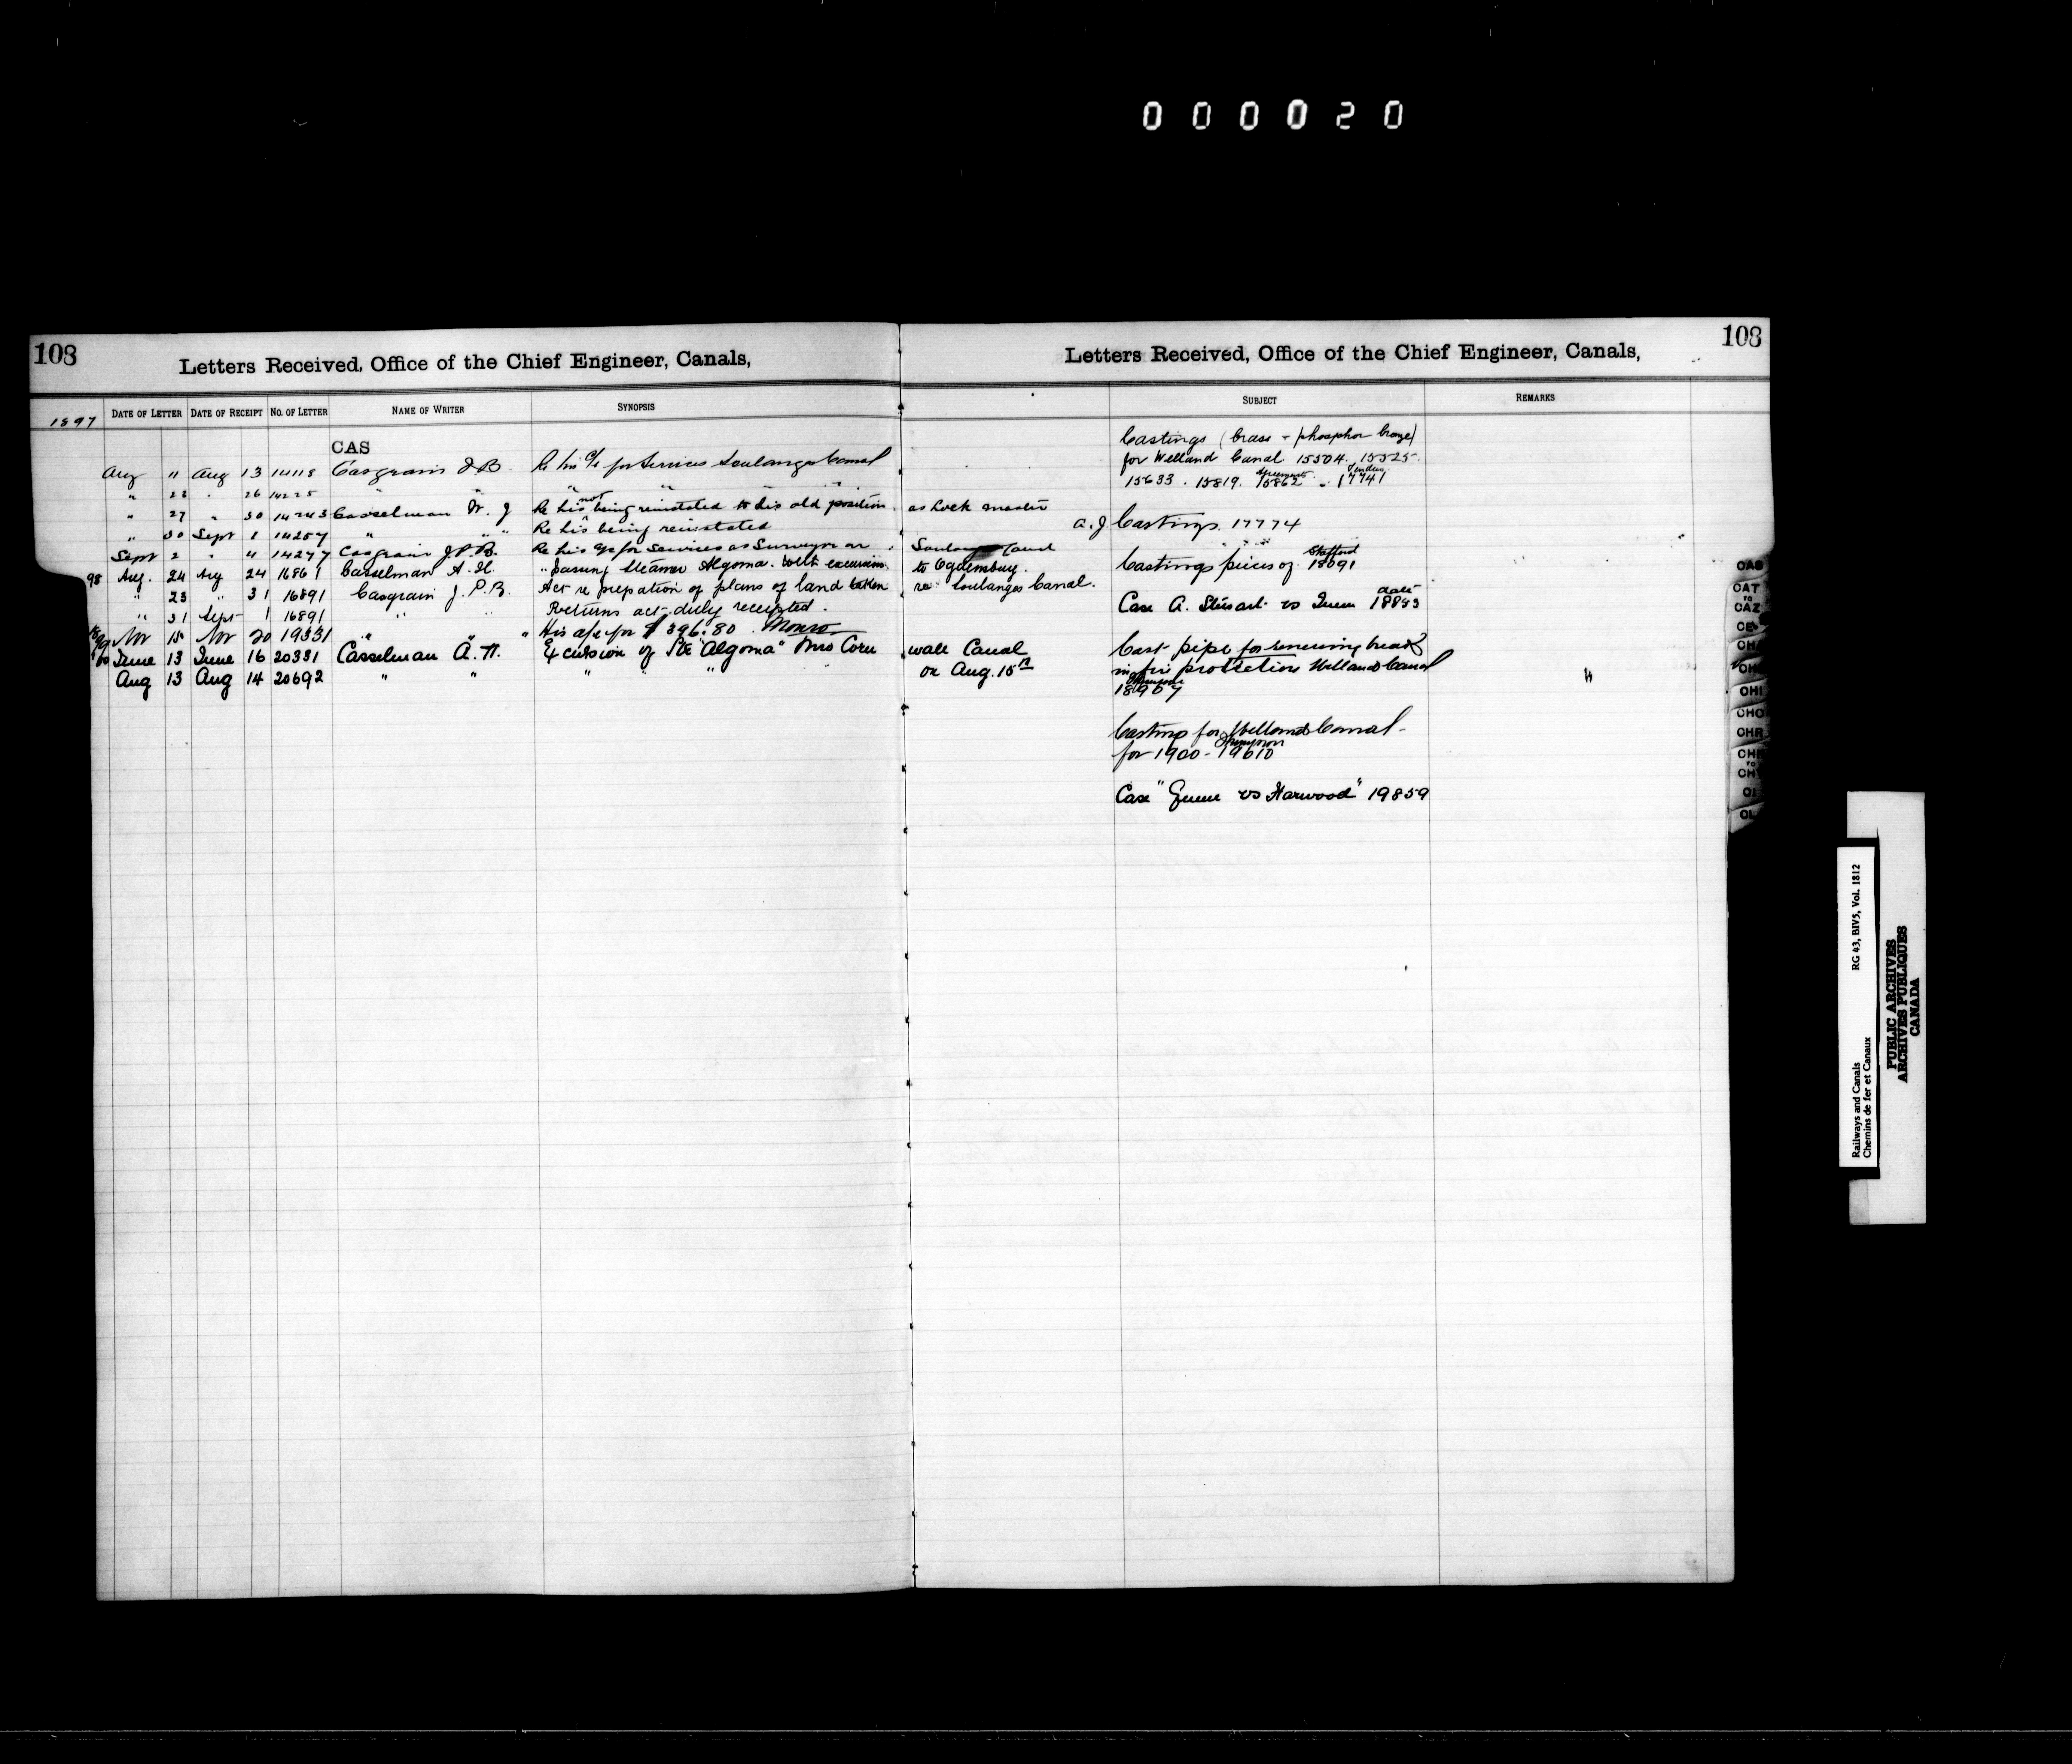 000020
108
Letters Received, Office of the Chief Engineer, Canals,
1897 DATE OF LETTER DATE OF RECEIPT NO. OF LETTER NAME OF WRITER SYNOPSIS
CAS
Aug 11 Aug 13 14118 Casgrain J B Re his a/c for Services Soulanges Canal
" 23 " 26 14225 " " " " "
" 27 " 30 14243 Casselman W. J Re his not being reinstated to his old position as Lock master
" 30 Sept 1 14257 " " " Re his being reinstated
Sept 2 " 4 14277 Casgrain J.P.B. Re his a/c for Services as Surveyor on Soulanges Canal
98 Aug. 24 Aug 24 16861 Casselman A. H. " passing Steamer Algoma. with excursion to Ogdensburg.
" 23 " 31 16891 Casgrain J. P. B. Act re prepation of plans of land taken re Soulanges Canal.
" 31 Sept 1 16891 " " Returns act duly receipted.
Nov 15 Nov 20 19331 " " His a/c for $396.80. Monro
June 13 June 16 20381 Casselman A. H. Excursion of Str "Algoma" thro Corn wall Canal
Aug 13 Aug 14 20692 " " " " " on Aug. 15th
108
Letters Received, Office of the Chief Engineer, Canals,
SUBJECT REMARKS
Castings (brass + phosphor bronze)
for Welland Canal 15504. 15525.
15633. 15819. Agreement 15862. Tenders 17741
A. J. Castings. 17774
Castings pieces of Stafford 18091
Case A. Stewart vs Queen 18883
Cast pipe for renewing break
in fire protection Welland Canal
Thompson
18967
Castings for Welland Canal
for 1900 - Thompson 19610
Case "Queen vs Harwood" 19859
CAS
CAT
TO
CAZ
CE
CHI
CHO
CHR
RG 43, BIV5, Vol. 1812
Railways and Canals
Chemins de fer et Canaux
PUBLIC ARCHIVES
ARCHIVES PUBLIQUES
CANADA